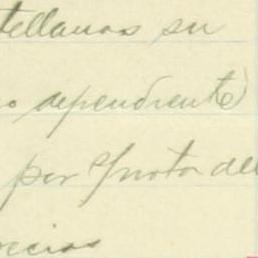 tellanos su
o dependiente
por Nota del
recios